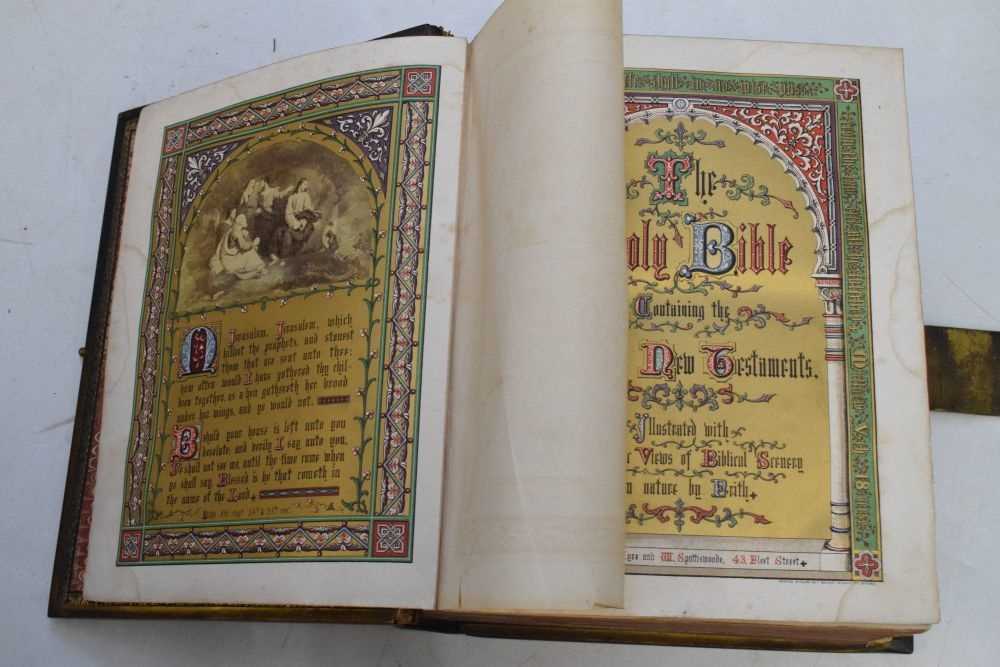 O Jerusalem, Jerusalem, which
killest the prophets, and stonest
them that are sent unto thee;
how often would I have gathered thy chil-
dren together, as a hen gathereth her brood
under her wings, and ye would not.
Behold your house is left unto you
desolate: and verily I say unto you,
Ye shall not see me, until the time come when
ye shall say Blessed is he that cometh in
the name of the Lord.
The
oly Bible
Containing the
New Testaments.
Illustrated with
Views of Biblical Scenery
nature by Frith
yre and W. Spottiswoode, 43, Fleet Street